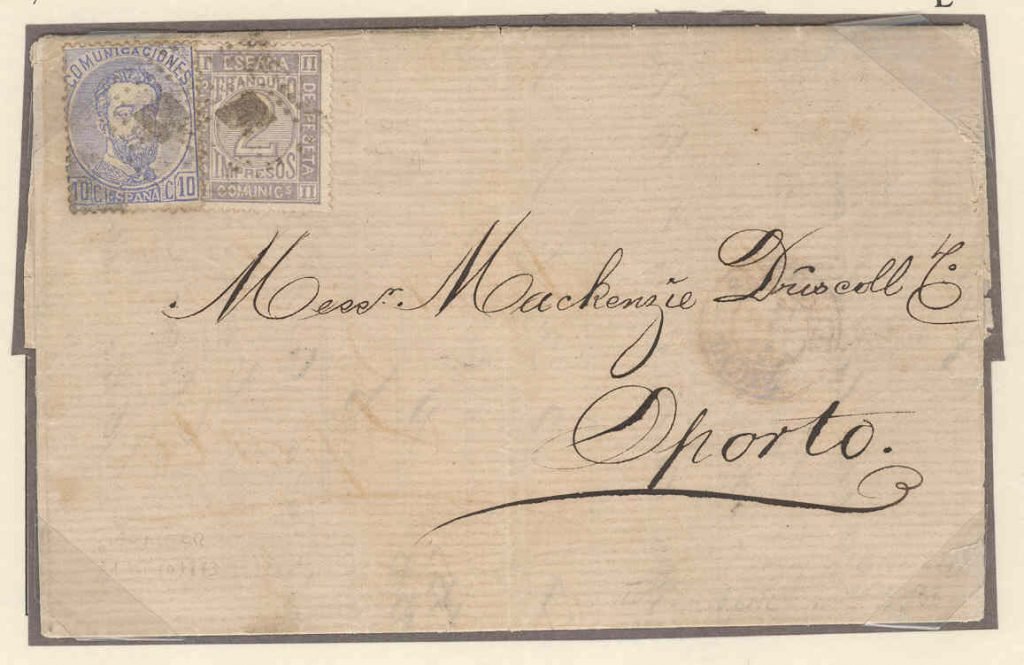 COMUNICACIONES
10 C. ESPAÑA C. 10
ESPAÑA
FRANQUEO
DE PESETA
2
IMPRESOS
COMUNICS
Messr. Mackenzie Driscoll & Co
Oporto.